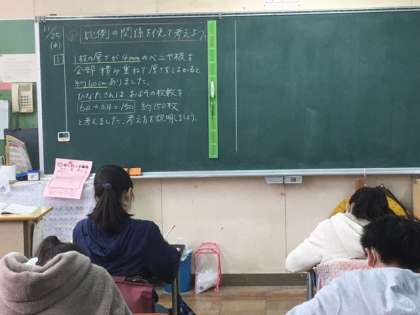 11/25
(木)
比例の関係を使って考えよう。
1
1枚の厚さが4mmのベニヤ板を
全部積み重ねて厚さをはかると
約60cmありました。
ひなたさんはおよその枚数を
60÷0.4=150 約150枚
と考えました。考え方を説明しましょう。